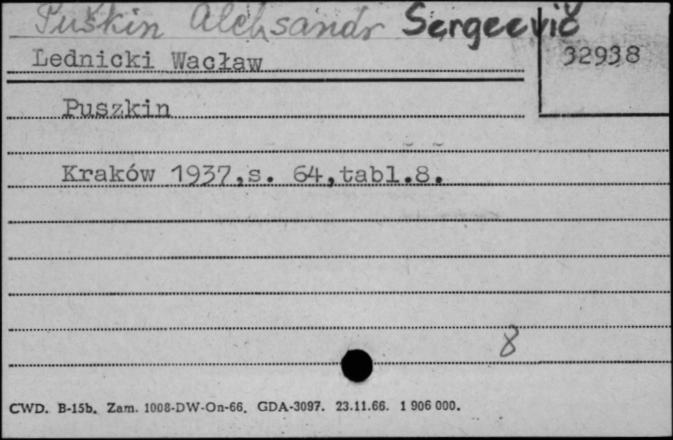 Puškin Aleksandr Sergeevič
Lednicki Wacław
32938
Puszkin
Kraków 1937,s. 64,tabl.8.
8
CWD. B-15b. Zam. 1008-DW-On-66. GDA-3097. 23.11.66. 1 906 000.